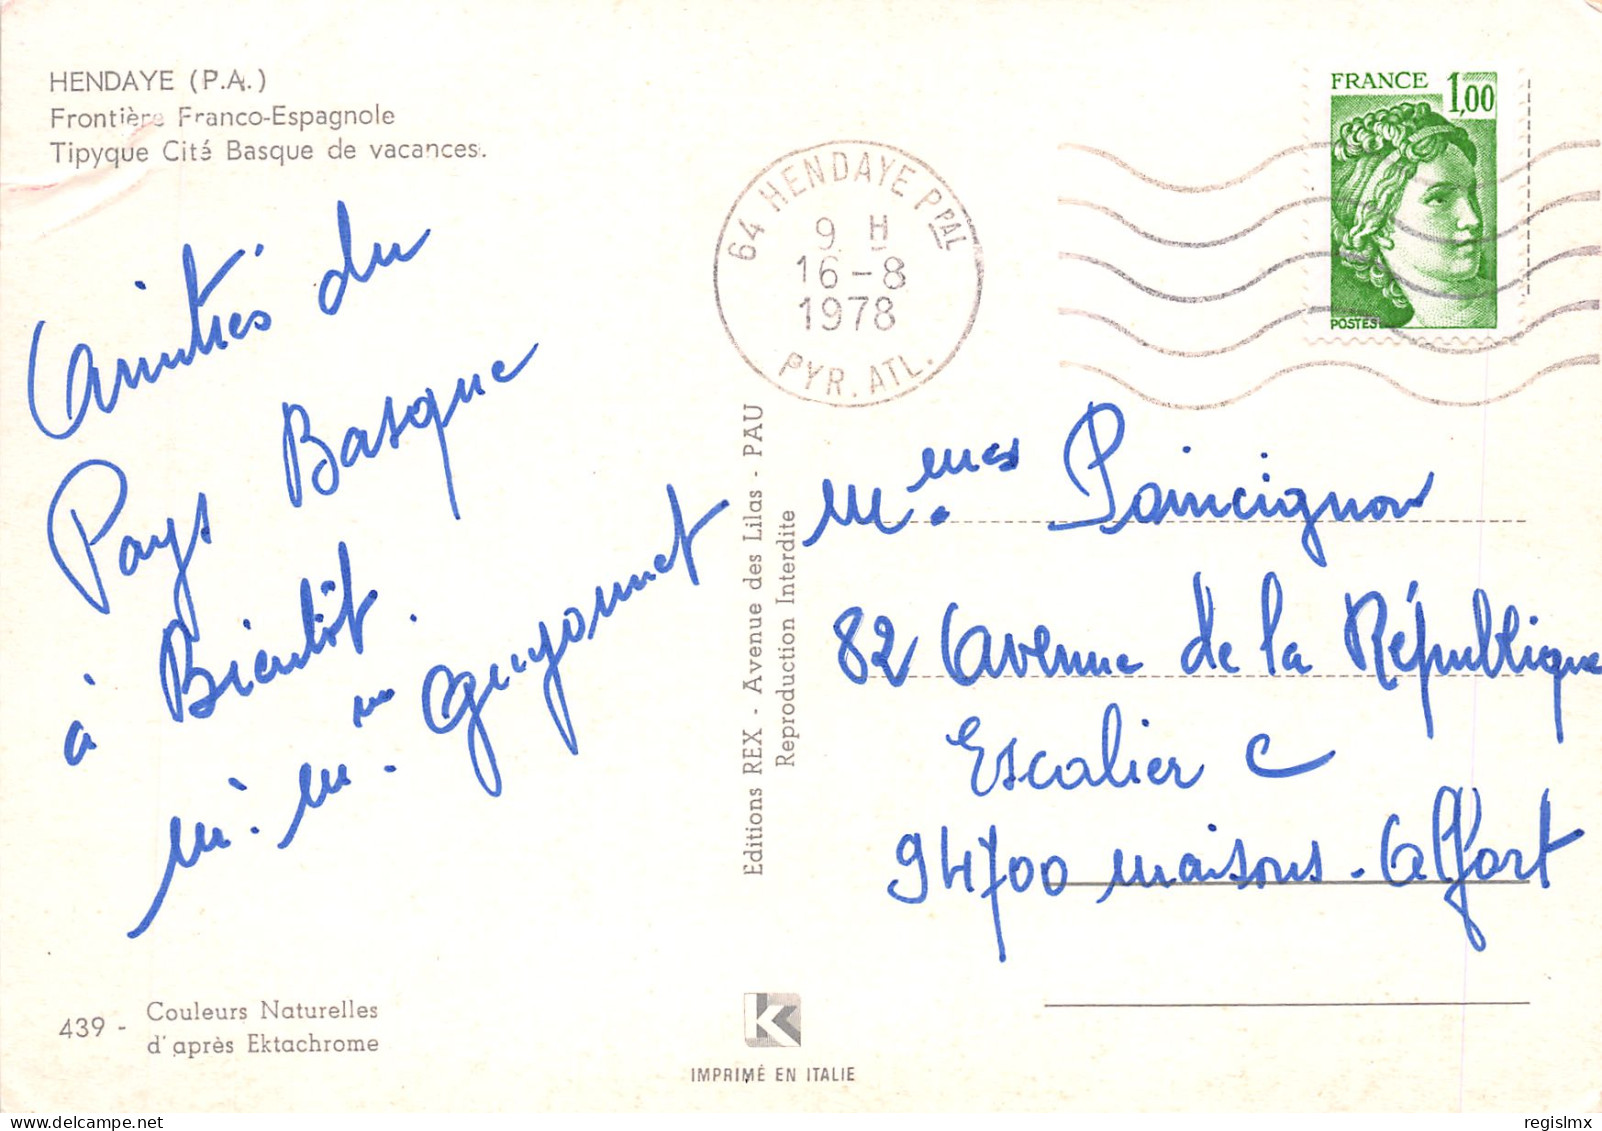 HENDAYE (P.A.)
Frontière Franco-Espagnole
Tipyque Cité Basque de vacances.
Amitiés du
Pays Basque
à Bientôt.
m. mme Guyonnet
439 - Couleurs Naturelles
d'après Ektachrome
Editions REX - Avenue des Lilas - PAU
Reproduction Interdite
IMPRIMÉ EN ITALIE
64 HENDAYE PPAL
9 H
16-8
1978
PYR. ATL.
FRANCE 1,00
POSTES
Mmes Poincignon
82 Avenue de la République
Escalier C
94700 Maisons-Alfort
regislmx